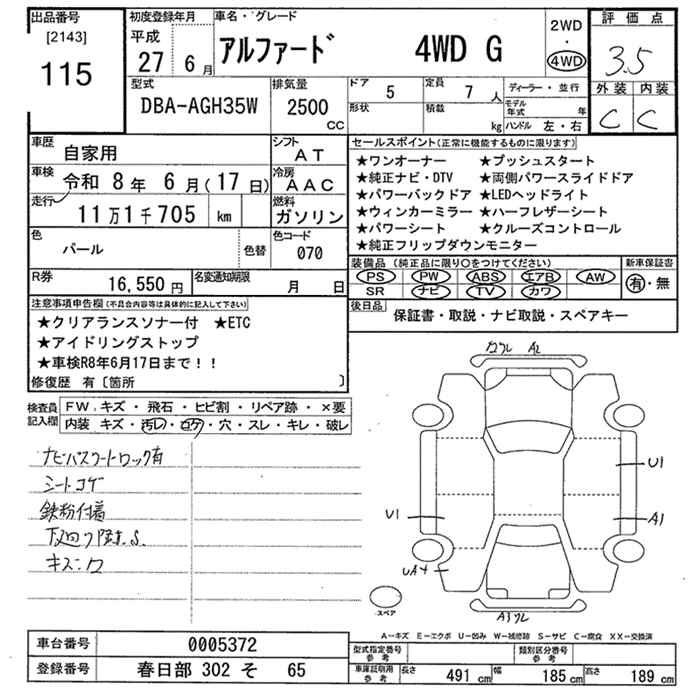 出品番号
[2143]
115
初度登録年月
平成
27 6月
車名・グレード
アルファード 4WD G
2WD
・
4WD
評価点
3.5
外装 内装
C C
型式
DBA-AGH35W
排気量
2500
CC
ドア
5
定員
7 人
形状
積載
kg
ディーラー・並行
モデル年式 年
ハンドル 左・右
車歴
自家用
シフト
AT
車検
令和 8年 6月(17日)
冷房
AAC
走行
11万1千705 km
燃料
ガソリン
色
パール
色替
色コード
070
R券
16,550円
名変通知期限
月 日
セールスポイント(正常に機能するものに限ります)
★ワンオーナー ★プッシュスタート
★純正ナビ・DTV ★両側パワースライドドア
★パワーバックドア ★LEDヘッドライト
★ウィンカーミラー ★ハーフレザーシート
★パワーシート ★クルーズコントロール
★純正フリップダウンモニター
装備品(純正品に限り○をつけてください)
PS PW ABS エアB AW
SR ナビ TV カワ
新車保証書
有・無
後日品
保証書・取説・ナビ取説・スペアキー
注意事項申告欄(不具合内容等は具体的に記入して下さい)
★クリアランスソナー付 ★ETC
★アイドリングストップ
★車検R8年6月17日まで!!
修復歴 有〔箇所 〕
検査員記入欄
FW.キズ・飛石・ヒビ割・リペア跡・×要
内装 キズ・汚レ・コゲ・穴・スレ・キレ・破レ
シートコゲ
鉄粉付着
A2
U1
U1
A1
UA4
スペア
A-キズ E-エクボ U-凹み W-補修跡 S-サビ C-腐食 XX-交換済
車台番号
0005372
登録番号
春日部 302 そ 65
型式指定番号
参考
類別区分番号
参考
車庫証明用
参考
長さ 491 cm
幅 185 cm
高さ 189 cm